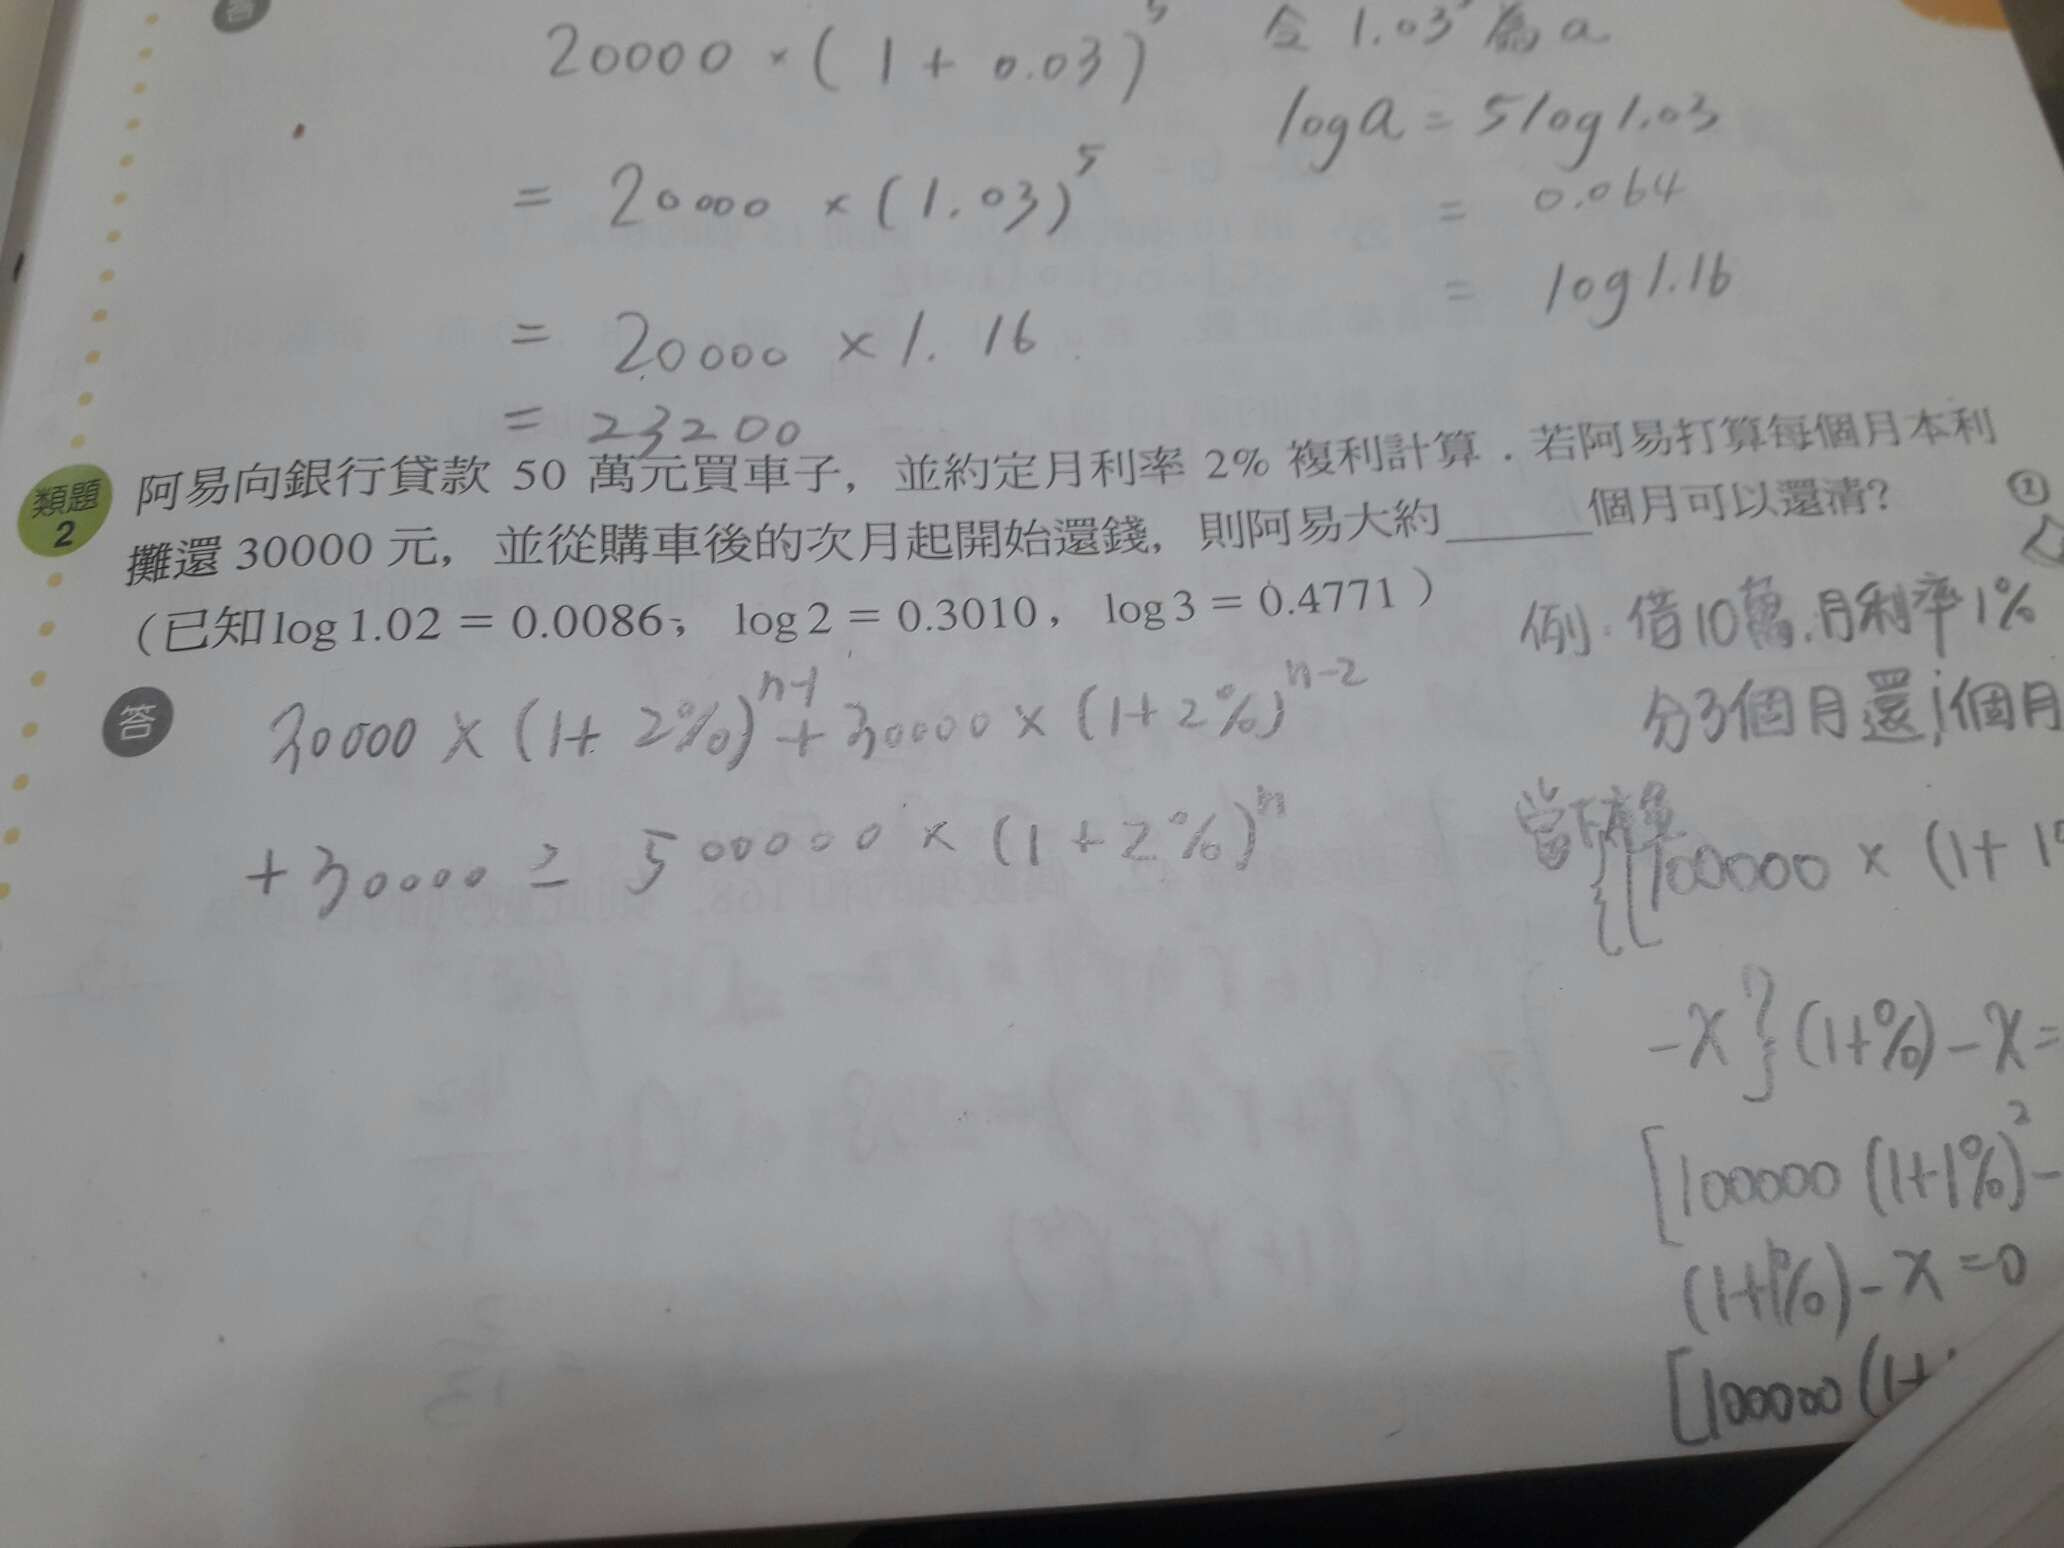 答
20000 × (1 + 0.03)⁵
= 20000 × (1.03)⁵
= 20000 × 1.16
= 23200
令 1.03⁵ 為 a
log a = 5log1.03
= 0.064
= log1.16
類題
2
阿易向銀行貸款 50 萬元買車子，並約定月利率 2% 複利計算．若阿易打算每個月本利
攤還 30000 元，並從購車後的次月起開始還錢，則阿易大約______個月可以還清？
（已知 log 1.02 = 0.0086； log 2 = 0.3010， log 3 = 0.4771 ）
答
30000 × (1+ 2%)ⁿ⁻¹ + 30000 × (1+ 2%)ⁿ⁻²
+ 30000 ≥ 500000 × (1 + 2%)ⁿ
例: 借10萬，月利率1%
分3個月還，個月
100000 × (1+ 1
-x}(1+%)-x=
[100000 (1+1%)² -
(1+1%)-x=0
[100000 (1+